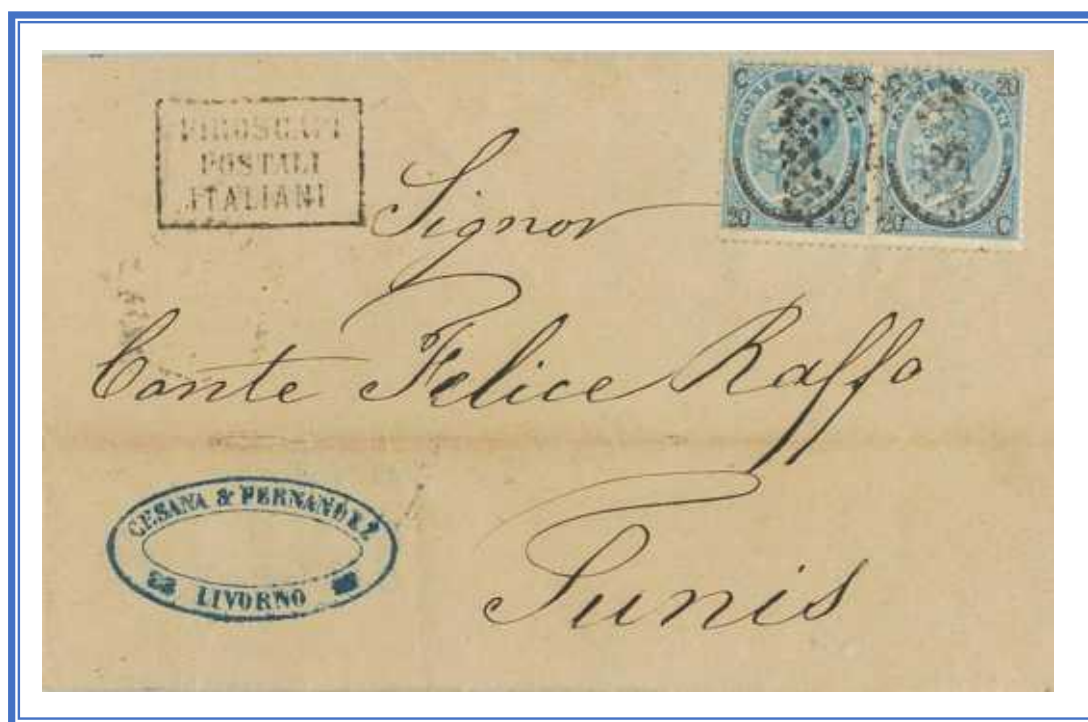 PIROSCAFI
POSTALI
ITALIANI
C 20
20 C
C 20
20 C
Signor
Conte Felice Raffo
CESANA & FERNANDEZ
LIVORNO
Tunis